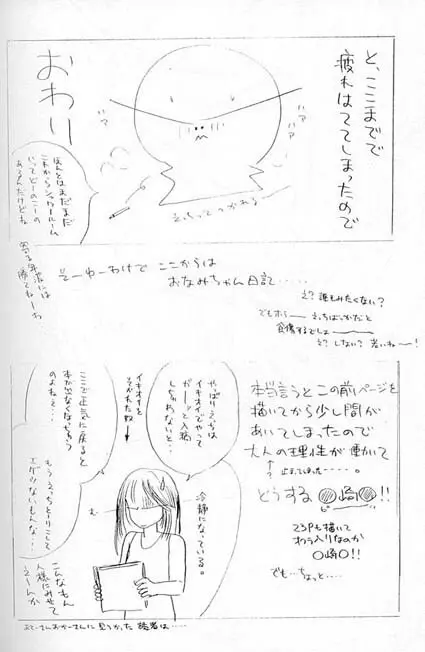 と、ここまでで
疲れはててしまったので
おわり
ハァ
ハァ
ハァ
えっちってつかれる
ほんとはまだまだ
これからシャワールーム
あるんだけどね
寄る年波には
勝てねーわ
そーゆーわけで ここからは
おなみちゃん日記・・・・・
え?誰もみたくない?
でもホラ えっちばっかだと
食傷するでしょ
え?しない?若いねー!
本当言うとこの前ページを
描いてから少し間が
あいてしまったので
大人の理性が働いて
↑
?
止まってしまった・・・・。
どうする○崎○!!
ピー
23Pも描いて
おわ入りなのか
○崎○!!
でも…ちょっと・・・・
やっぱりえっちは
イキオイでやって
ガーッと入稿
しなわないと・・
イキオイを
そがれた奴
ここで正気に戻ると
本が出なくなっちゃう
のよねぇ・・・
冷静になっている。
む
もうえっちとりこして
エゲツないもんな・・
こんなもん
人様にみせて
えーんか
おとーさんおかーさんに見つかった読者は・・・・・